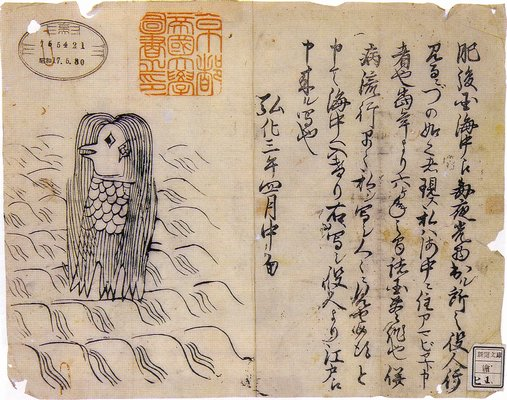 肥後国海中え毎夜光物出ル所之役人行
見るニづの如く者現ス私ハ海中ニ住アマビヱト申
者也當年より六ヶ年之間諸国豊作也併
病流行早々私シ写シ人々ニ見せ候得と
申て海中へ入けり右写シ役人より江戸え
申来ル写也
弘化三年四月中旬
京都
帝國大學
圖書之印
165421
昭和17.6.30
新聞文庫
繪
ヒ 1